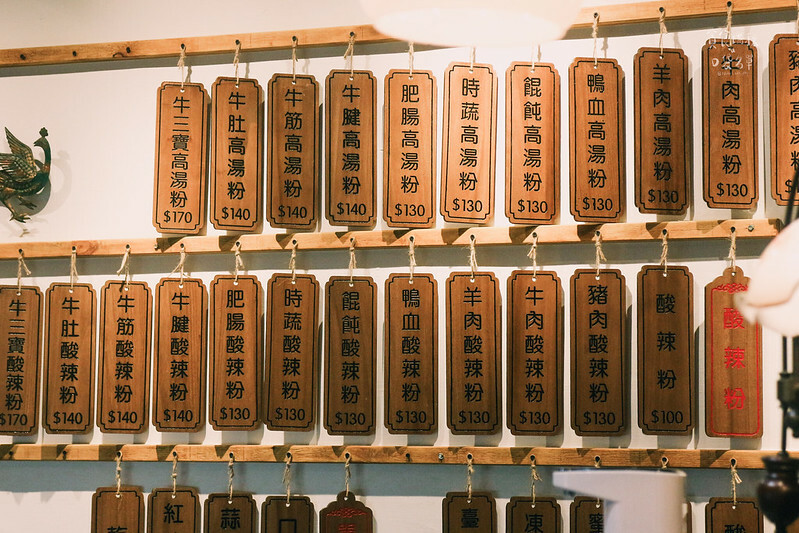 牛三寶高湯粉 $170
牛肚高湯粉 $140
牛筋高湯粉 $140
牛腱高湯粉 $140
肥腸高湯粉 $130
時蔬高湯粉 $130
餛飩高湯粉 $130
鴨血高湯粉 $130
羊肉高湯粉 $130
肉高湯粉 $130
豬肉高湯
牛三寶酸辣粉 $170
牛肚酸辣粉 $140
牛筋酸辣粉 $140
牛腱酸辣粉 $140
肥腸酸辣粉 $130
時蔬酸辣粉 $130
餛飩酸辣粉 $130
鴨血酸辣粉 $130
羊肉酸辣粉 $130
牛肉酸辣粉 $130
豬肉酸辣粉 $130
酸辣粉 $100
酸辣粉
乾
紅
蒜
口
臺
凍
蜜